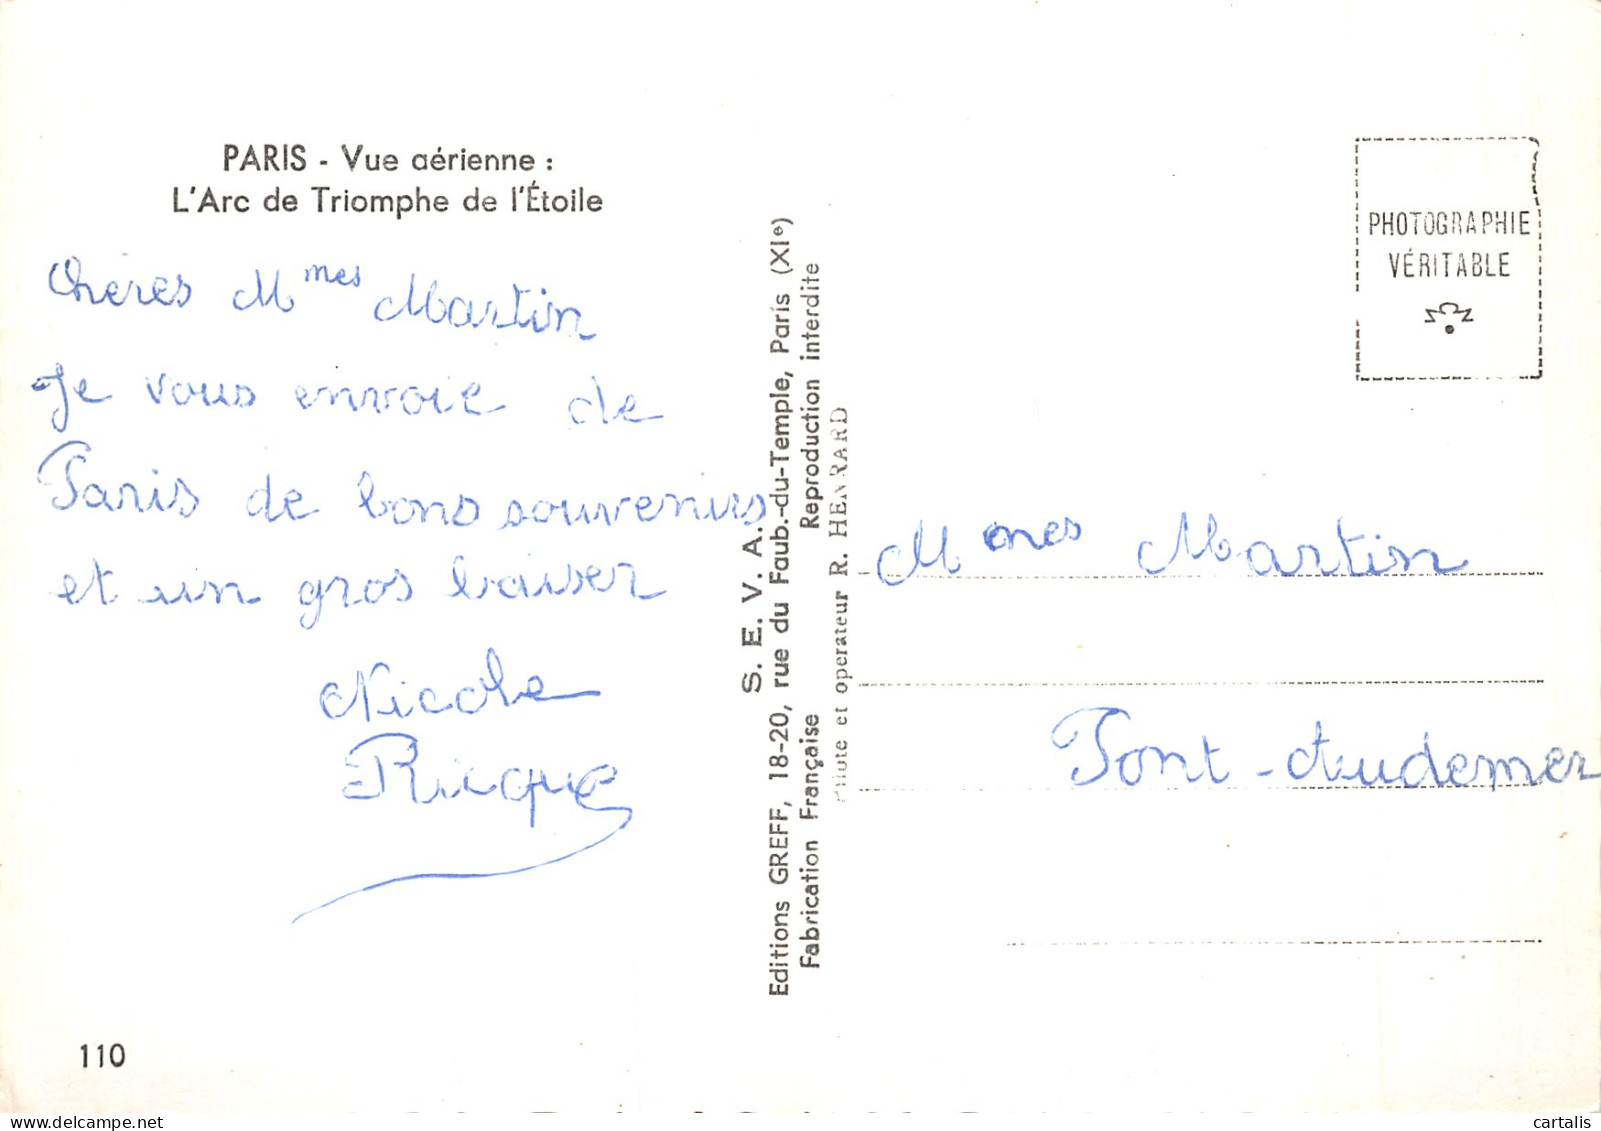 PARIS - Vue aérienne :
L'Arc de Triomphe de l'Étoile
Cheres Mmes Martin
Je vous envoie de
Paris de bons souvenirs
et un gros baiser
Nicole
Ricque
110
S. E. V. A.
Editions GREFF, 18-20, rue du Faub.-du-Temple, Paris (XIe)
Fabrication Française Reproduction interdite
Pilote et operateur R. HENRARD
PHOTOGRAPHIE
VÉRITABLE
Mmes Martin
Pont-Audemer
delcampe.net
cartalis